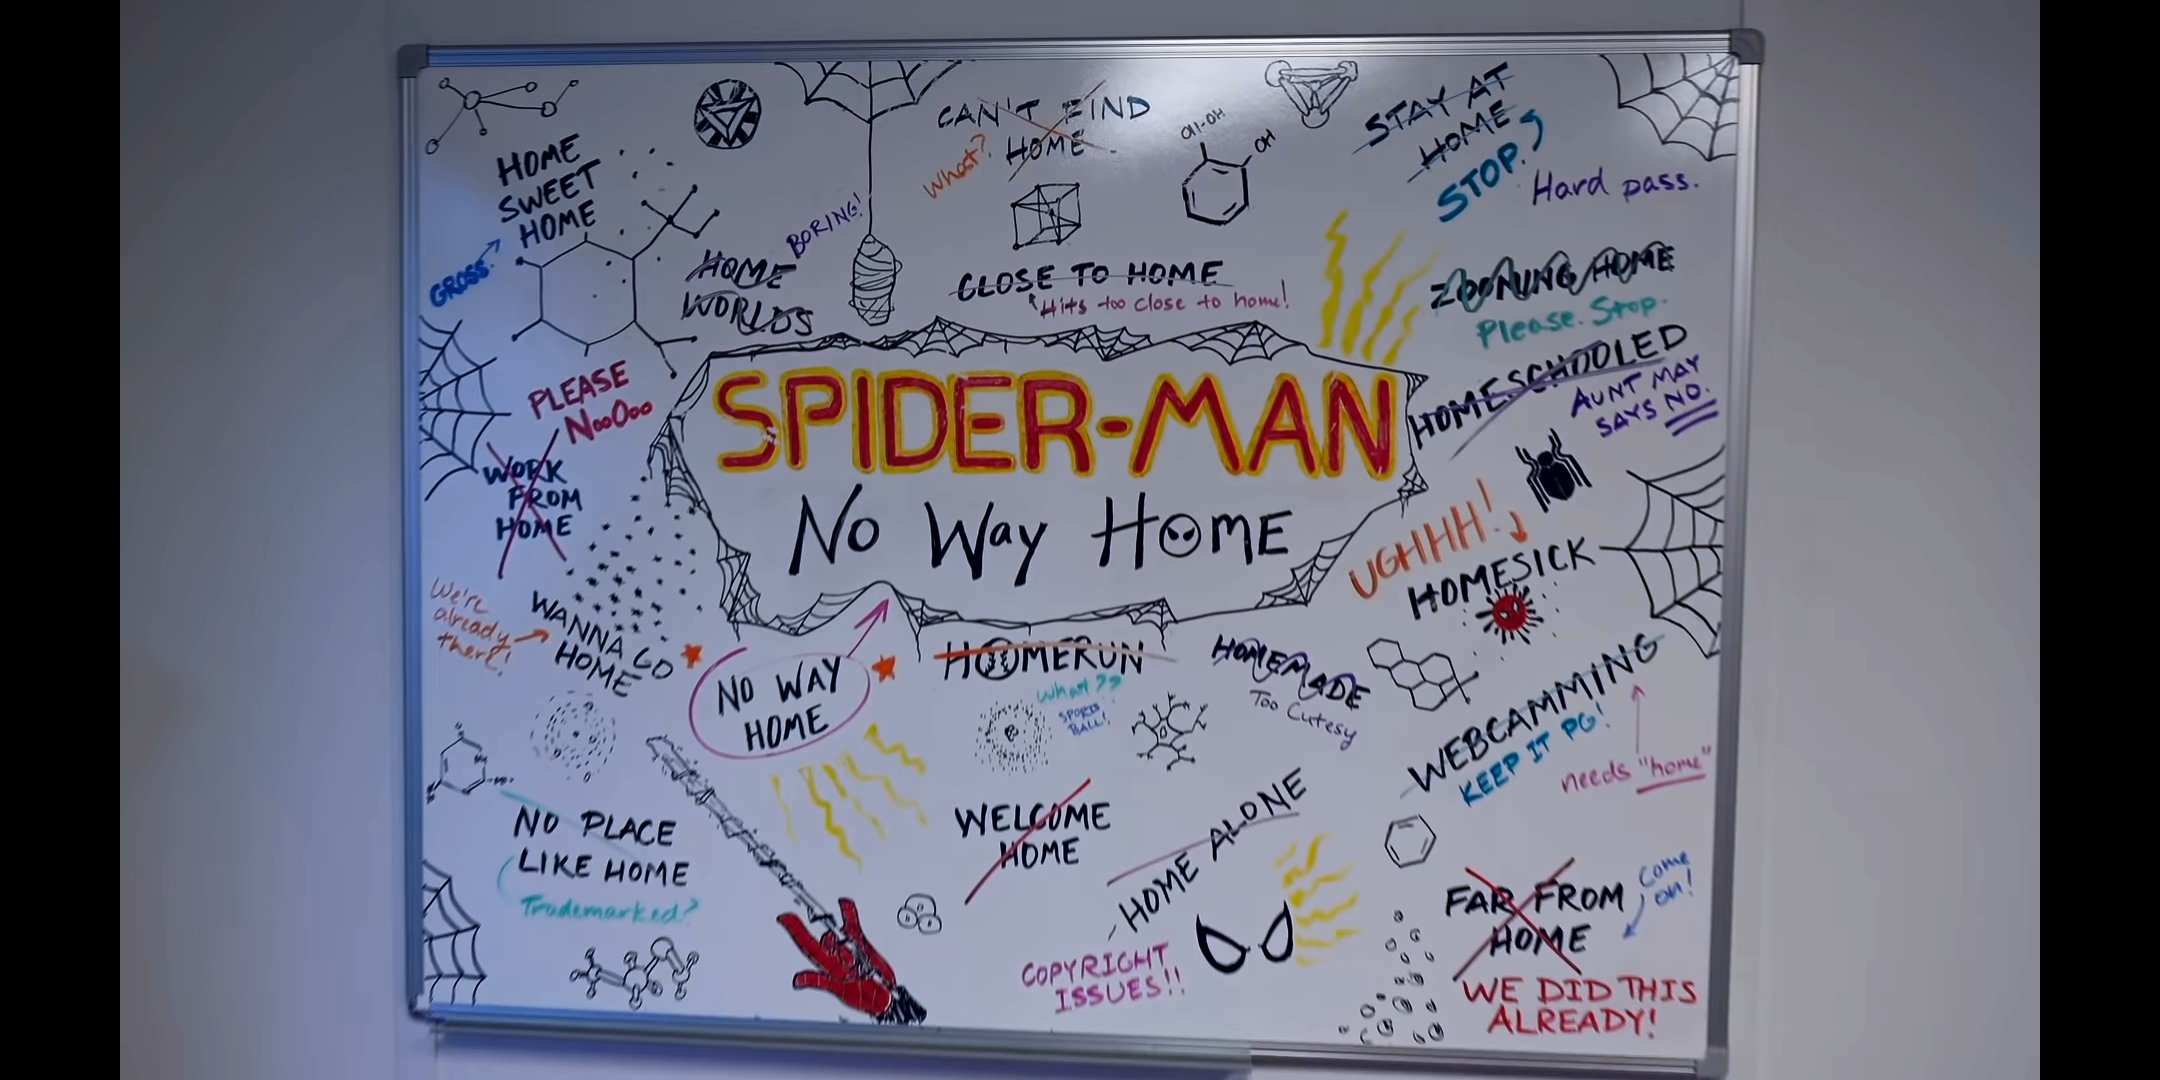 HOME
SWEET
HOME
GROSS.
HOME
WORLDS
BORING!
CAN'T FIND
HOME
What?
OH-OH
OH
STAY AT
HOME
STOP.
Hard pass.
CLOSE TO HOME
Hits too close to home!
ZOOMING HOME
Please. Stop.
HOMESCHOOLED
AUNT MAY
SAYS NO.
PLEASE
NooOoo
WORK
FROM
HOME
SPIDER-MAN
No Way HOME
UGHHH!
HOMESICK
We're
already
there!
WANNA GO
HOME
NO WAY
HOME
HOMERUN
What??
SPORTS
BALL!
HOMEMADE
Too Cutesy
WEBCAMMING
KEEP IT PG!
needs "home"
NO PLACE
LIKE HOME
Trademarked?
WELCOME
HOME
HOME ALONE
COPYRIGHT
ISSUES!!
FAR FROM
HOME
Come
on!
WE DID THIS
ALREADY!